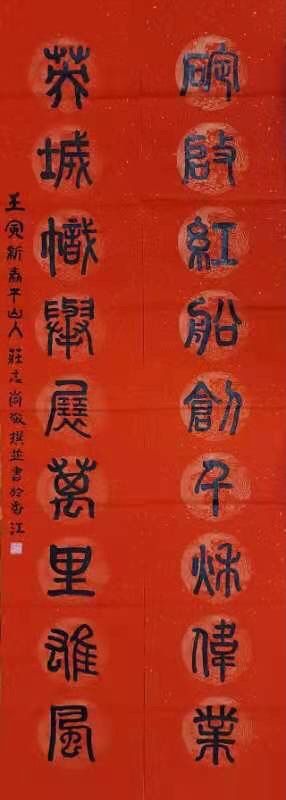 碇啟紅船創千秋偉業
英城幟舉展萬里雄風
壬寅新春山人莊志尚敬撰並書於香江